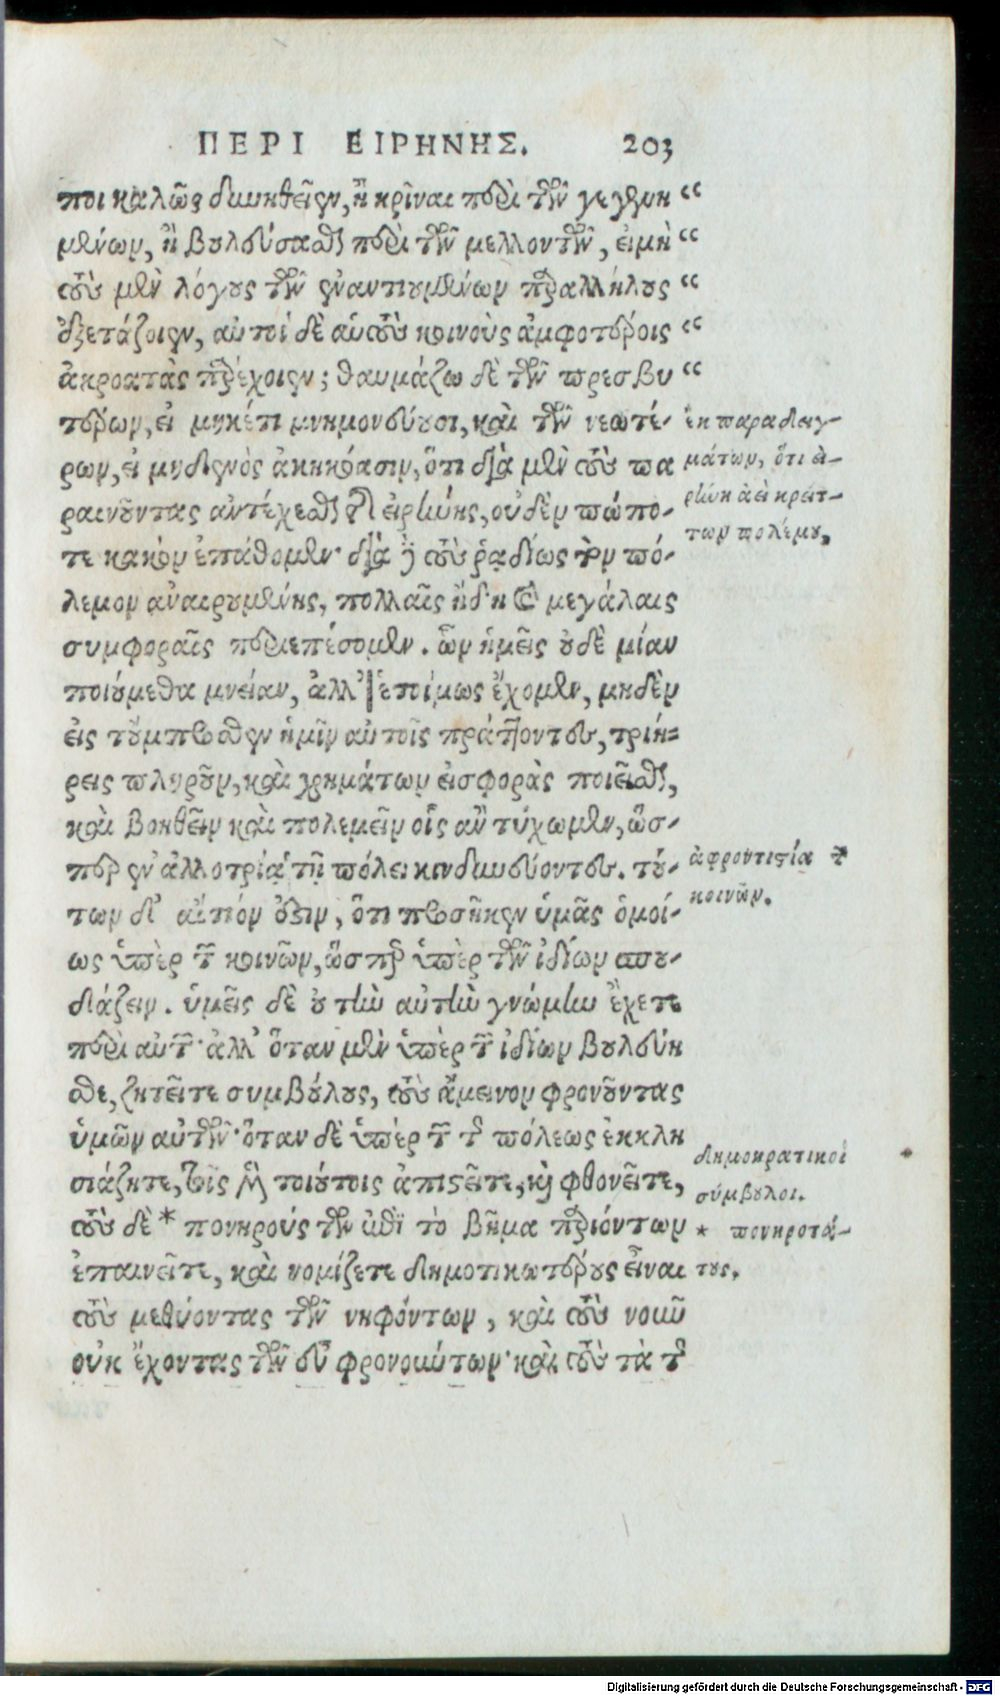 ΠΕΡΙ ΕΙΡΗΝΗΣ. 203
ποι καλῶς δυνηθεῖεν, ἢ κρῖναι περὶ τῶν γεγενη “
μένων, ἢ βουλεύσασθαι περὶ τῶν μελλόντων, εἰ μὴ “
τοὺς μὲν λόγους τῶν ἐναντιουμένων παρ᾽ ἀλλήλους “
ἐξετάζοιεν, αὐτοὶ δὲ αὑτοὺς κοινοὺς ἀμφοτέροις “
ἀκροατὰς παράσχοιεν; θαυμάζω δὲ τῶν πρεσβυ “
τέρων, εἰ μηκέτι μνημονεύουσι, καὶ τῶν νεωτέ-
ρων, εἰ μηδενὸς ἀκηκόασιν, ὅτι διὰ μὲν τοὺς πα
ραινοῦντας ἀντέχεσθαι τῆς εἰρήνης, οὐδὲν πώπο-
τε κακὸν ἐπάθομεν· διὰ δὲ τοὺς ῥᾳδίως τὸν πό-
λεμον ἀναιρουμένης, πολλαῖς ἤδη καὶ μεγάλαις
συμφοραῖς περιεπέσομεν. ὧν ἡμεῖς οὐδὲ μίαν
ποιούμεθα μνείαν, ἀλλ᾽ ἑτοίμως ἔχομεν, μηδὲν
εἰς τοὔμπροσθεν ἡμῖν αὐτοῖς πράττοντες, τριή-
ρεις πληροῦν, καὶ χρημάτων εἰσφορὰς ποιεῖσθαι,
καὶ βοηθεῖν καὶ πολεμεῖν οἷς ἂν τύχωμεν, ὥσ-
περ ἐν ἀλλοτρίᾳ τῇ πόλει κινδυνεύοντες. τού-
των δ᾽ αἴτιόν ἐστιν, ὅτι προσῆκεν ὑμᾶς ὁμοί-
ως ὑπὲρ τῶν κοινῶν, ὥσπερ ὑπὲρ τῶν ἰδίων σπου-
δάζειν. ὑμεῖς δὲ οὐ τὴν αὐτὴν γνώμην ἔχετε
περὶ αὐτῶν· ἀλλ᾽ ὅταν μὲν ὑπὲρ τῶν ἰδίων βουλεύη
σθε, ζητεῖτε συμβούλους, τοὺς ἄμεινον φρονοῦντας
ὑμῶν αὐτῶν· ὅταν δὲ ὑπὲρ τῶν τῆς πόλεως ἐκκλη
σιάζητε, τοῖς μὲν τοιούτοις ἀπιστεῖτε, καὶ φθονεῖτε,
τοὺς δὲ * πονηροὺς τῶν ἐπὶ τὸ βῆμα παριόντων
ἐπαινεῖτε, καὶ νομίζετε δημοτικωτέρους εἶναι
τοὺς μεθύοντας τῶν νηφόντων, καὶ τοὺς νοῦν
οὐκ ἔχοντας τῶν εὖ φρονούντων· καὶ τοὺς τὰ τῆς
ἐκ παραδειγ-
μάτων, ὅτι εἰ-
ρήνη ἀεὶ κρείτ-
των πολέμου.
ἀφροντιστία τῶν
κοινῶν.
δημοκρατικοὶ
σύμβουλοι.
* πονηροτά-
τους.
Digitalisierung gefördert durch die Deutsche Forschungsgemeinschaft - DFG